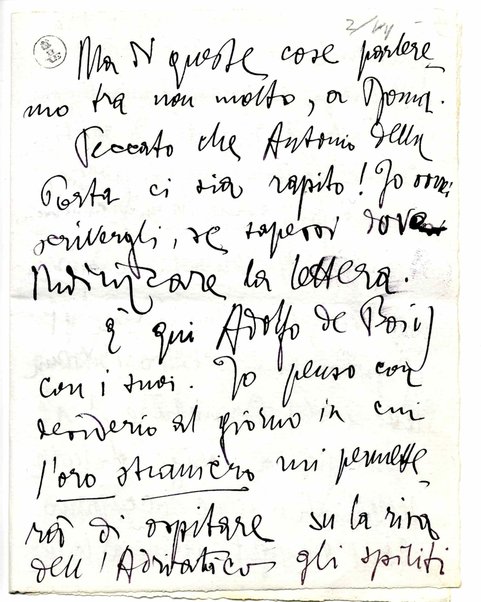 Ma di queste cose parlere-
mo tra non molto, a Roma.
Peccato che Antonio della
Porta ci sia rapito! Io vorrei
scrivergli, se sapessi dove
indirizzare la lettera.
È qui Adolfo de Bosis
con i suoi. Io penso con
desiderio al giorno in cui
l'oro straniero mi permette-
rà di ospitare su la riva
dell'Adriatico gli spiliti